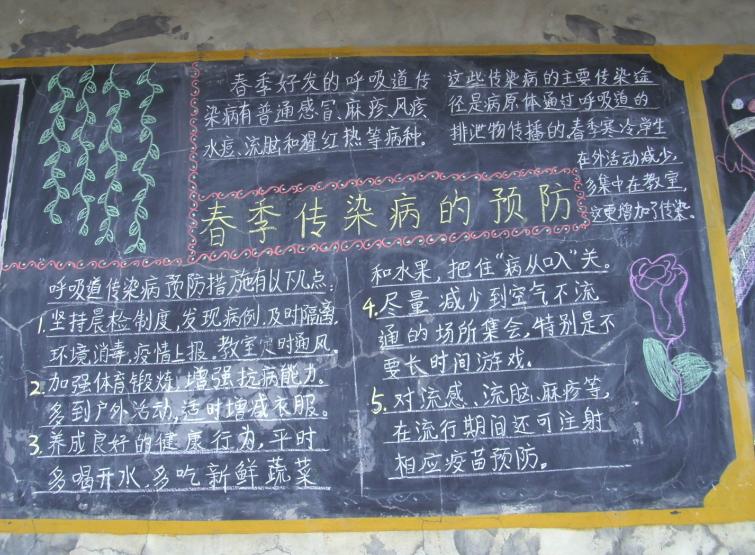 春季好发的呼吸道传
染病有普通感冒、麻疹、风疹、
水痘、流脑和猩红热等病种。
这些传染病的主要传染途
径是病原体通过呼吸道的
排泄物传播的,春季寒冷学生
在外活动减少,
多集中在教室,
这更增加了传染。
春季传染病的预防
呼吸道传染病预防措施有以下几点:
1.坚持晨检制度,发现病例,及时隔离,
环境消毒,疫情上报,教室定时通风。
2.加强体育锻炼,增强抗病能力。
多到户外活动,适时增减衣服。
3.养成良好的健康行为,平时
多喝开水,多吃新鲜蔬菜
和水果,把住“病从口入”关。
4.尽量减少到空气不流
通的场所集会,特别是不
要长时间游戏。
5.对流感、流脑、麻疹等,
在流行期间还可注射
相应疫苗预防。